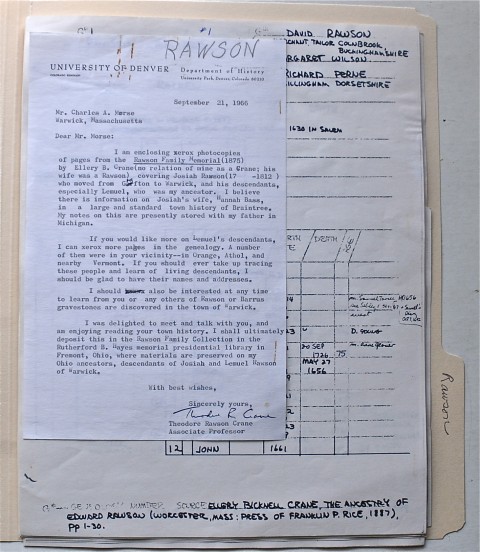 #1
RAWSON
UNIVERSITY OF DENVER
Department of History
University Park, Denver, Colorado 80210
September 21, 1966
Mr. Charles A. Morse
Warwick, Massachusetts
Dear Mr. Morse:
I am enclosing xerox photocopies
of pages from the Rawson Family Memorial(1875)
by Ellery B. Crane(no relation of mine as a Crane; his
wife was a Rawson), covering Josiah Rawson(17 -1812 )
who moved from Grafton to Warwick, and his descendants,
especially Lemuel, who was my ancestor. I believe
there is information on Josiah's wife, Hannah Bass,
in a large and standard town history of Braintree.
My notes on this are presently stored with my father in
Michigan.
If you would like more on Lemuel's descendants,
I can xerox more pages in the genealogy. A number
of them were in your vicinity--in Orange, Athol, and
nearby Vermont. If you should ever take up tracing
these people and learn of living descendants, I
should be glad to have their names and addresses.
I should also be interested at any time
to learn from you or any others of Rawson or Barrus
gravestones are discovered in the town of Warwick.
I was delighted to meet and talk with you, and
am enjoying reading your town history. I shall ultimately
deposit this in the Rawson Family Collection in the
Rutherford B. Hayes memorial presidential library in
Fremont, Ohio, where materials are preserved on my
Ohio ancestors, descendants of Josiah and Lemuel Rawson
of Warwick.
With best wishes,
Sincerely yours,
Theodore R. Crane
Theodore Rawson Crane
Associate Professor
DAVID RAWSON
CHANT, TAILOR COLNBROOK,
BUCKINGHAMSHIRE
ARGARET WILSON
RICHARD PERNE
ILLINGHAM DORSETSHIRE
1630 IN SALEM
DEATH
20 SEP
1726 75
MAY 27
1656
12 JOHN 1661
NUMBER SOURCE ELLERY BICKNELL CRANE, THE ANCESTRY OF
EDWARD RAWSON (WORCESTER, MASS: PRESS OF FRANKLIN P. RICE, 1887),
PP 1-30.
Rawson